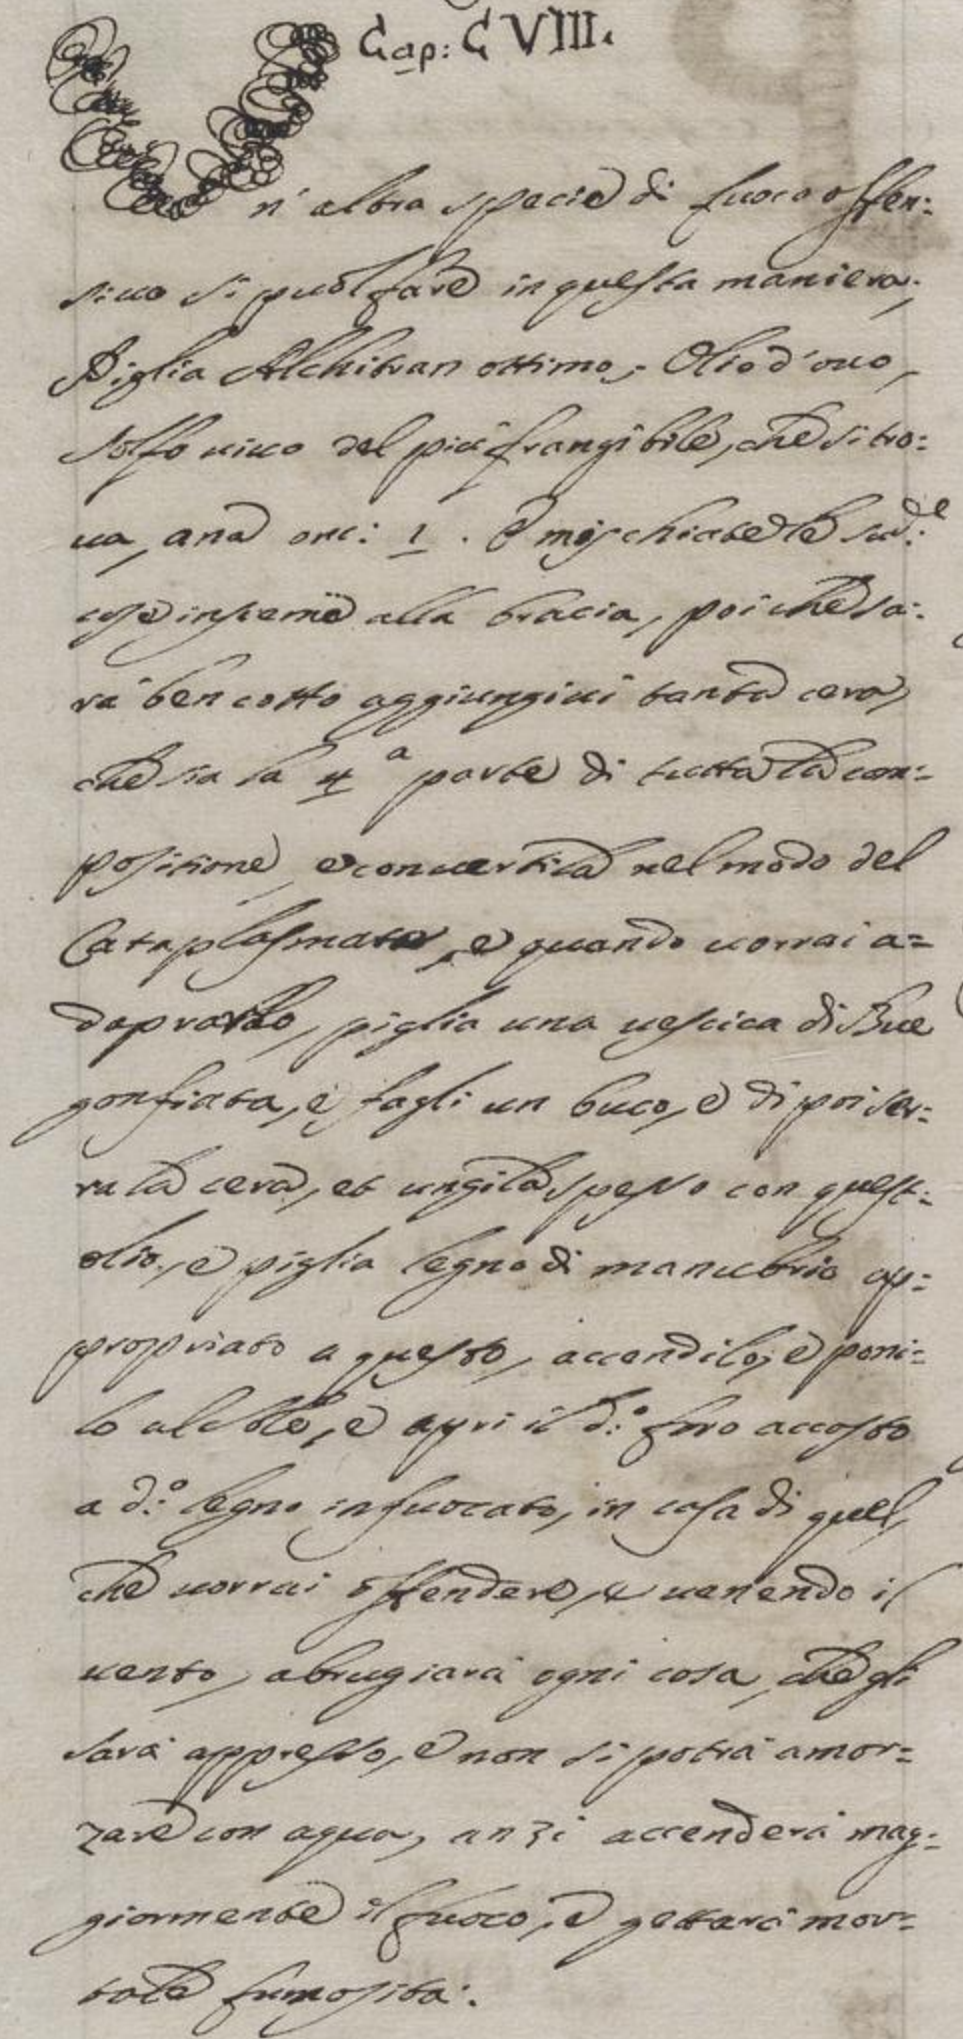 Cap: CVIII.
Un' altra specie di fuoco offen:
siuo si puol fare in questa maniera;
Piglia Alchitran ottimo, Olio d' ouo,
solfo uiuo del più frangibile, che si tro:
ua, ana onc: 1. E mischiate le sud.e
cose insieme alla bracia, poi che sa:
rà ben cotto aggiungiui tanta cera,
che sia la 4.a parte di tutta la com:
positione, e conuertila nel modo del
Cataplasmate, e quando uorrai a=
doprarlo, piglia una uescica di Bue
gonfiata, e fagli un buco, e di poi ser:
ra la cera, et ungila spesso con quest:
olio, e piglia legno di manubrio ap:
propriato a questo, accendilo, e poni:
lo al Sole, e apri il d.o foro accosto
a d.o legno infuocato, in casa di quel,
che uorrai offendere, & uenendo il
uento, abrugiarà ogni cosa, che gli
sarà appresso, e non si potrà amor:
zare con aqua, anzi accenderà mag:
giormente il fuoco, e gettarà mor:
tale fumosità.